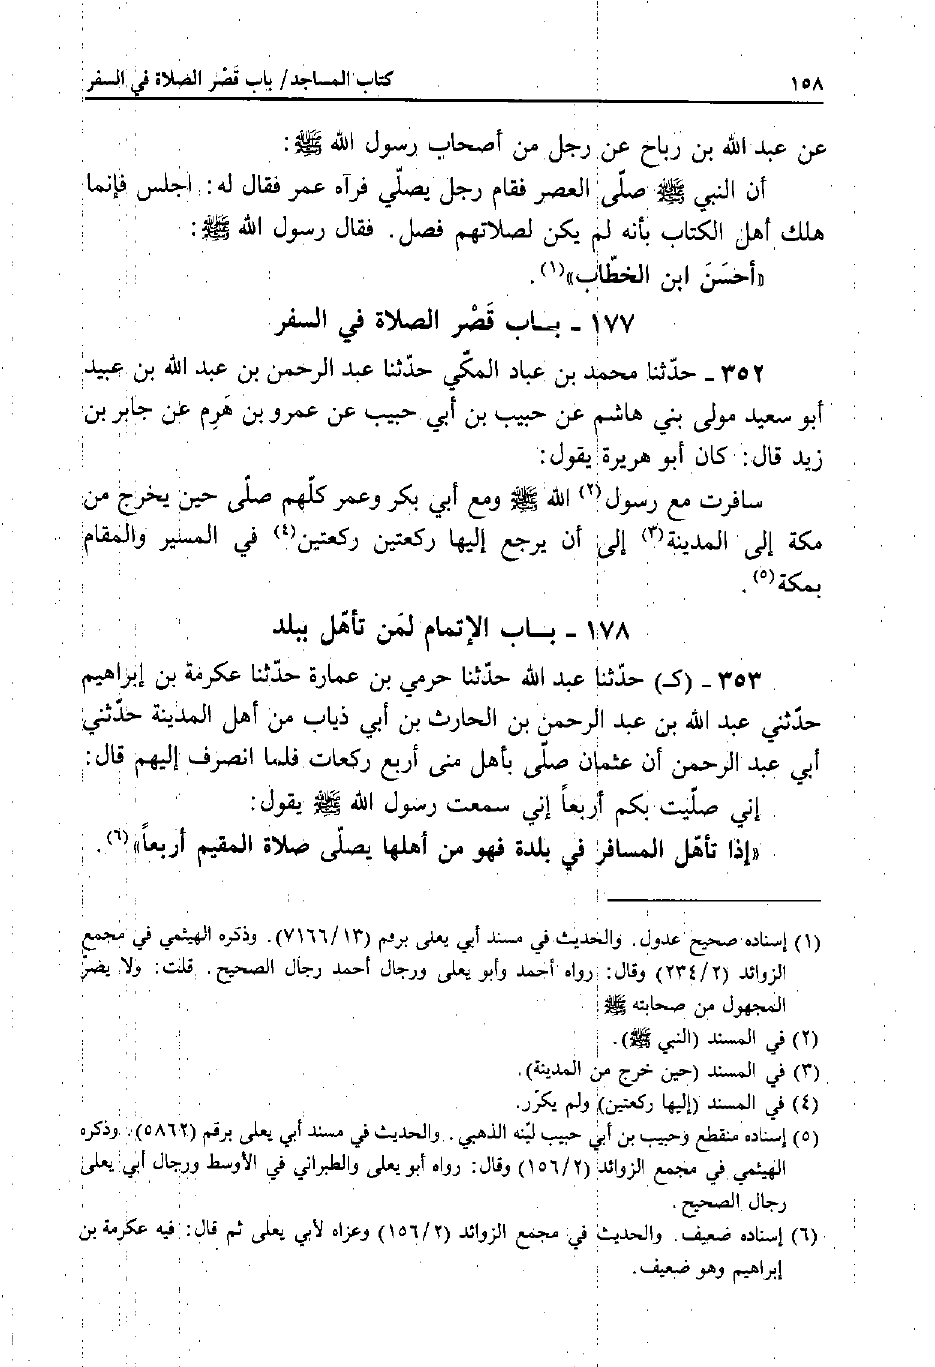 ١٥٨ كتاب المساجد/ باب قَصْر الصلاة في السفر
عن عبد الله بن رباح عن رجل من أصحاب رسول الله ﷺ:
أن النبي ﷺ صلّى العصر فقام رجل يصلّي فرآه عمر فقال له: اجلس فإنما
هلك أهل الكتاب بأنه لم يكن لصلاتهم فصل. فقال رسول الله ﷺ:
«أحسَنَ ابن الخطّاب»(١).
١٧٧ - بـاب قَصْر الصلاة في السفر
٣٥٢ - حدّثنا محمد بن عباد المكّي حدّثنا عبد الرحمن بن عبد الله بن عبيد
أبو سعيد مولى بني هاشم عن حبيب بن أبي حبيب عن عمرو بن هَرِم عن جابر بن
زيد قال: كان أبو هريرة يقول:
سافرت مع رسول(٢) الله ﷺ ومع أبي بكر وعمر كلّهم صلّى حين يخرج من
مكة إلى المدينة(٣) إلى أن يرجع إليها ركعتين ركعتين(٤) في المسير والمقام
بمكة(٥).
١٧٨ - بـاب الإتمام لمَن تأهّل ببلد
٣٥٣ - (ك) حدّثنا عبد الله حدّثنا حرمي بن عمارة حدّثنا عكرمة بن إبراهيم
حدّثني عبد الله بن عبد الرحمن بن الحارث بن أبي ذياب من أهل المدينة حدّثني
أبي عبد الرحمن أن عثمان صلّى بأهل منى أربع ركعات فلما انصرف إليهم قال:
إني صلّيت بكم أربعاً إني سمعت رسول الله ﷺ يقول:
«إذا تأهّل المسافر في بلدة فهو من أهلها يصلّى صلاة المقيم أربعاً»(٦).
(١) إسناده صحيح عدول. والحديث في مسند أبي يعلى برقم (٧١٦٦/١٣). وذكره الهيثمي في مجمع
الزوائد (٢٣٤/٢) وقال: رواه أحمد وأبو يعلى ورجال أحمد رجال الصحيح. قلت: ولا يضرّ
المجهول من صحابته ﷺ
(٢) في المسند (النبي ﷺ).
(٣) في المسند (حين خرج من المدينة).
(٤) في المسند (إليها ركعتين) ولم يكرّر.
(٥) إسناده منقطع وحبيب بن أبي حبيب ليّنه الذهبي. والحديث في مسند أبي يعلى برقم (٥٨٦٢). وذكره
الهيثمي في مجمع الزوائد (١٥٦/٢) وقال: رواه أبو يعلى والطبراني في الأوسط ورجال أبي يعلى
رجال الصحيح.
(٦) إسناده ضعيف. والحديث في مجمع الزوائد (١٥٦/٢) وعزاه لأبي يعلى ثم قال: فيه عكرمة بن
إبراهيم وهو ضعيف.